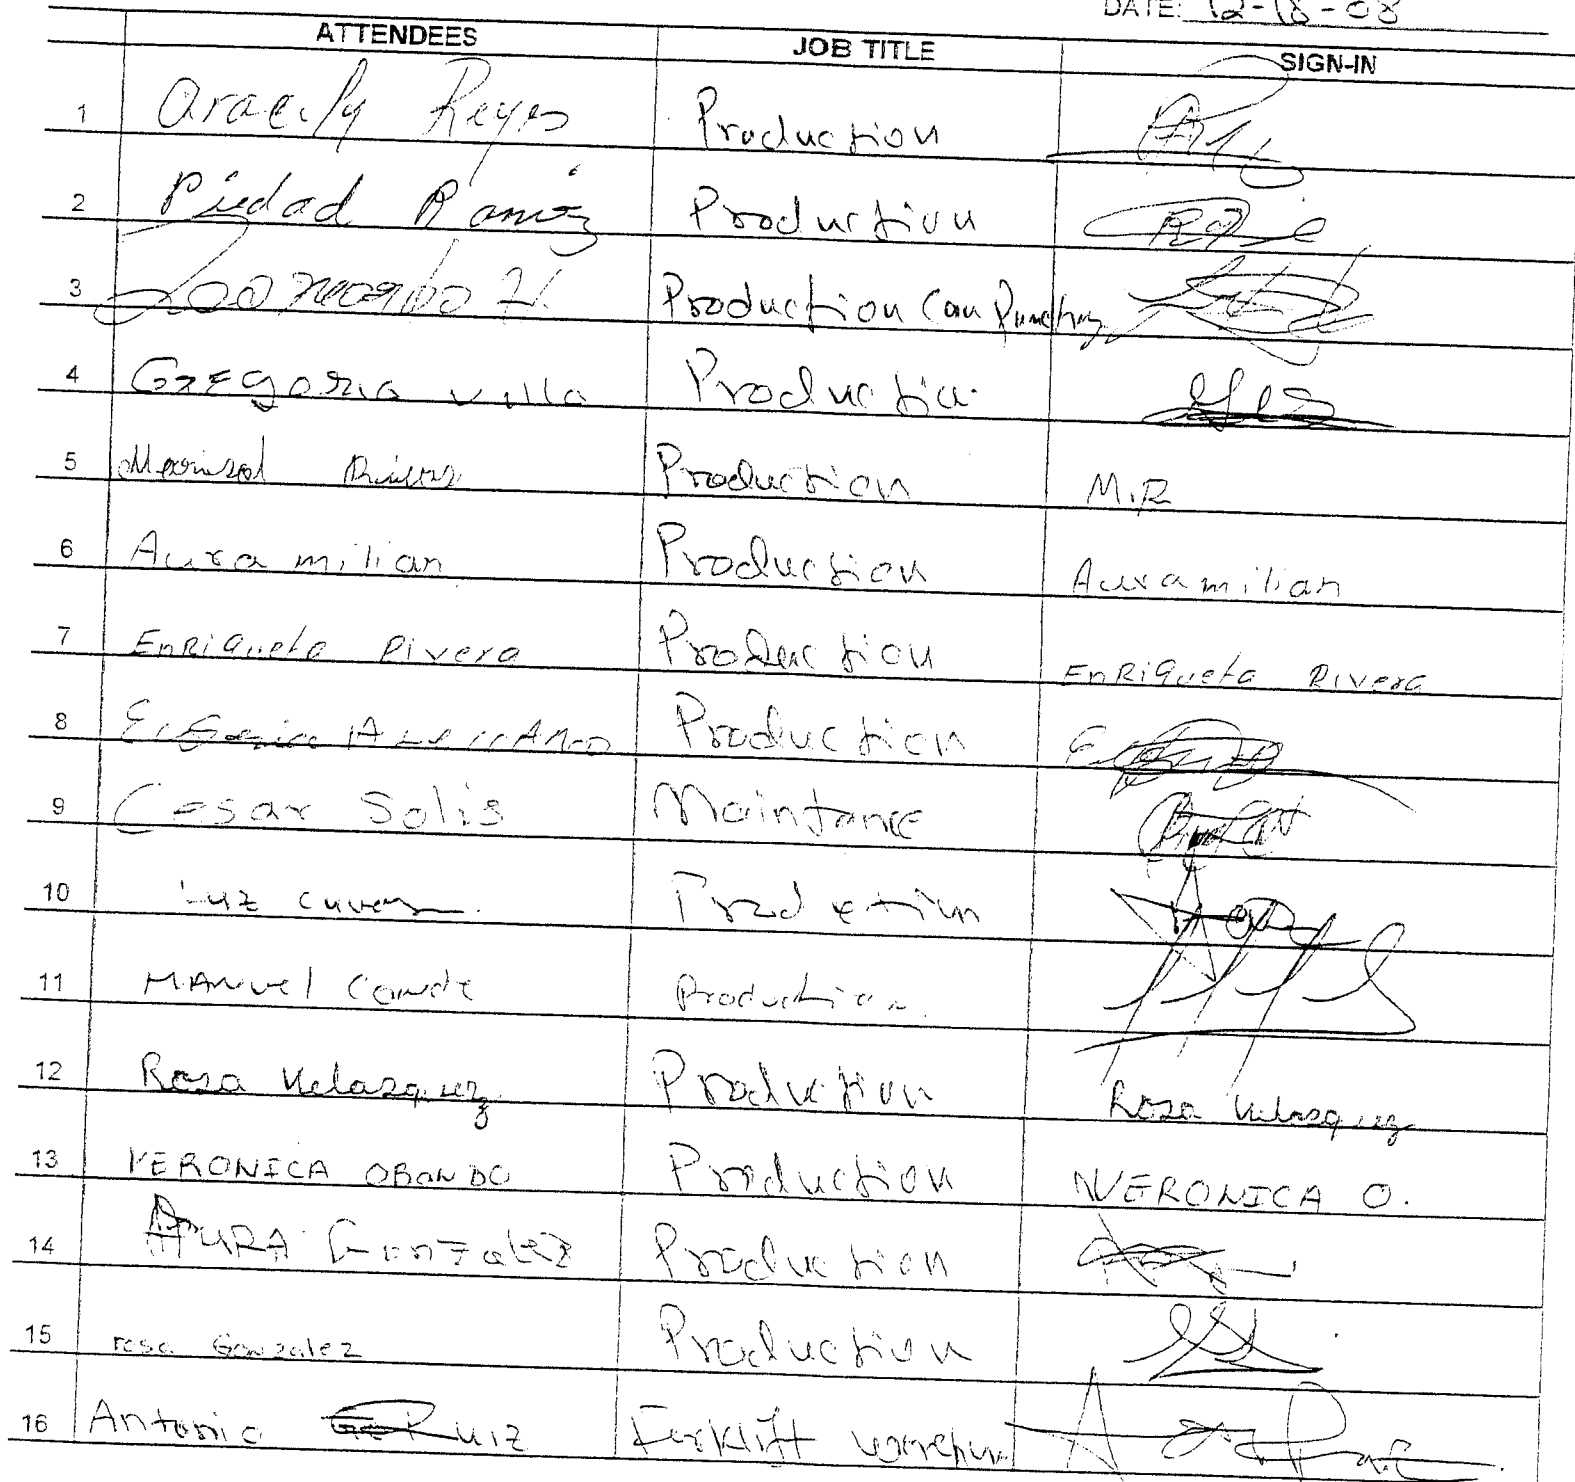 DATE: 12-18-08
ATTENDEES JOB TITLE SIGN-IN
1 Aracely Reyes Production
2 Piedad Ramirez Production
3 Production Can Punching
4 Gregoria Villa Production
5 Marisol Production M.R
6 Aura milian Production Aura milian
7 EnRiqueta Rivera Production EnRiqueta Rivera
8 Production
9 Cesar Solis Maintance
10 Luz Production
11 MANUel Conde Production
12 Rosa Velasquez Production Rosa Velasquez
13 VERONICA OBANDO Production VERONICA O.
14 AURA Gonzalez Production
15 rosa Gonzalez Production
16 Antonio Ruiz Forklift